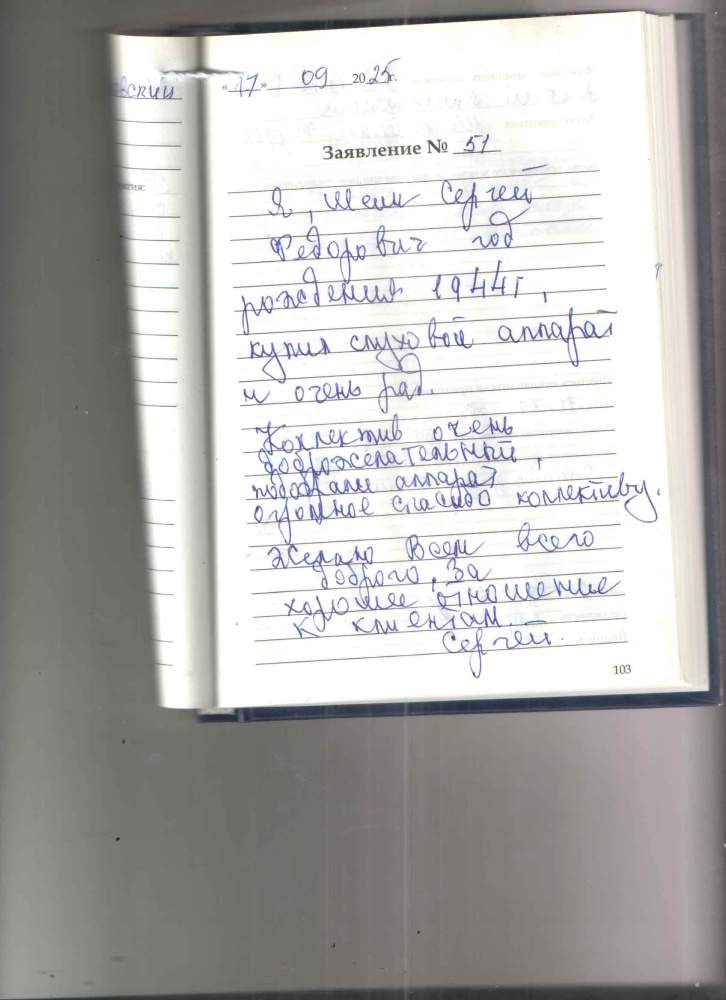 вский
"17" 09 2025г.
Заявление № 51
тия:
Я, Сергей
Федорович год
рождения 1944г,
купил слуховой аппарат
и очень рад.
Коллектив очень
доброжелательный,
подобрали аппарат
огромное спасибо коллективу.
Желаю Всем всего
доброго, За
хорошее отношение
к клиентам.
Сергей.
103